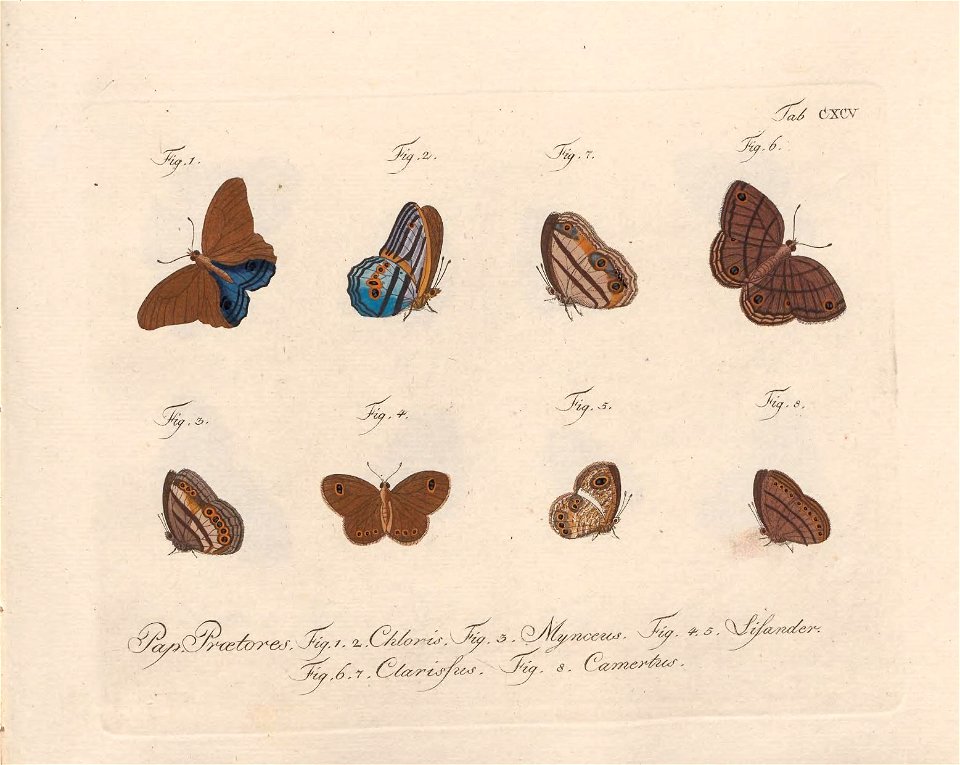 Tab CXCV
Fig. 1. Fig. 2. Fig. 7. Fig. 6.
Fig. 3. Fig. 4. Fig. 5. Fig. 8.
Pap Prætores. Fig. 1. 2. Chloris. Fig. 3. Mynceus. Fig. 4. 5. Liſander.
Fig. 6. 7. Clariſsus. Fig. 8. Camertus.